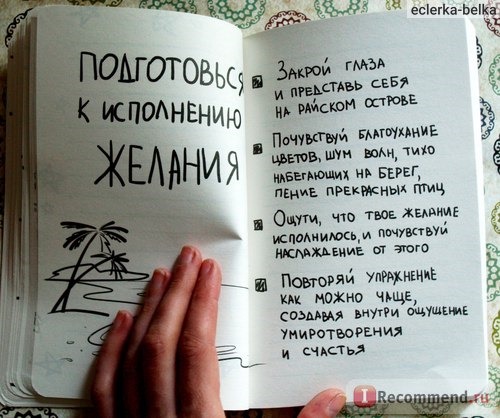 eclerka-belka
ПОДГОТОВЬСЯ
К ИСПОЛНЕНИЮ
ЖЕЛАНИЯ
ЗАКРОЙ ГЛАЗА
И ПРЕДСТАВЬ СЕБЯ
НА РАЙСКОМ ОСТРОВЕ
ПОЧУВСТВУЙ БЛАГОУХАНИЕ
ЦВЕТОВ, ШУМ ВОЛН, ТИХО
НАБЕГАЮЩИХ НА БЕРЕГ,
ПЕНИЕ ПРЕКРАСНЫХ ПТИЦ
ОЩУТИ, ЧТО ТВОЕ ЖЕЛАНИЕ
ИСПОЛНИЛОСЬ, И ПОЧУВСТВУЙ
НАСЛАЖДЕНИЕ ОТ ЭТОГО
ПОВТОРЯЙ УПРАЖНЕНИЕ
КАК МОЖНО ЧАЩЕ,
СОЗДАВАЯ ВНУТРИ ОЩУЩЕНИЕ
УМИРОТВОРЕНИЯ
И СЧАСТЬЯ
I Recommend.ru